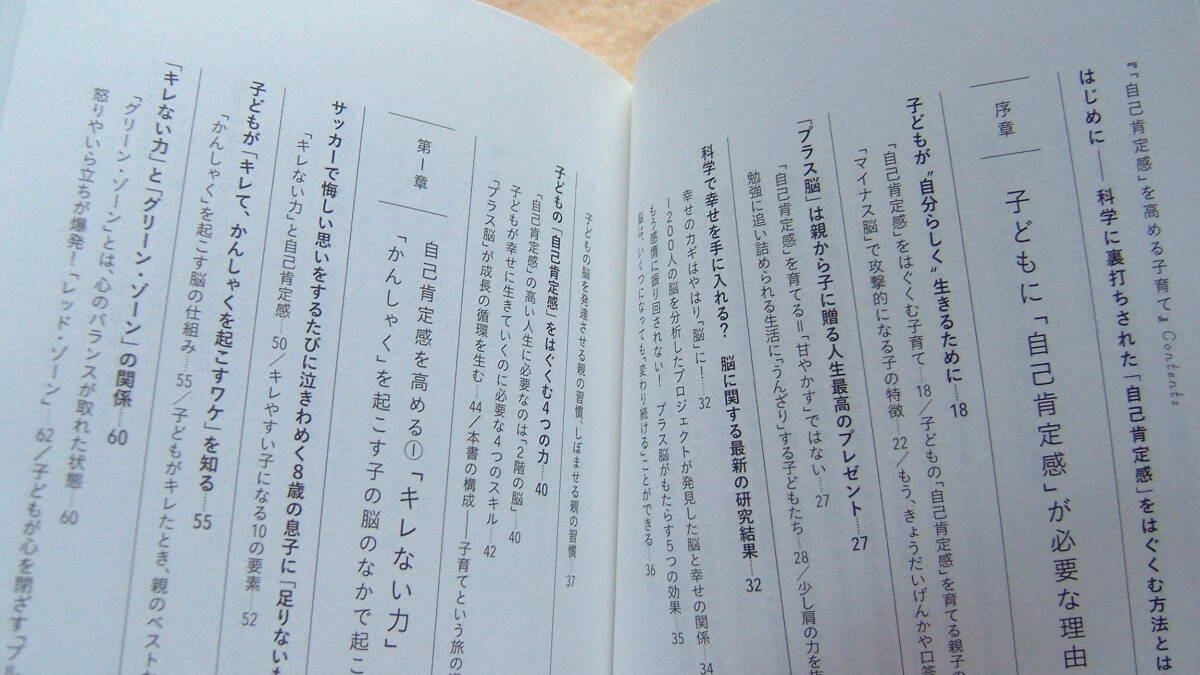 『「自己肯定感」を高める子育て』 Contents
はじめに――科学に裏打ちされた「自己肯定感」をはぐくむ方法とは
序章
子どもに「自己肯定感」が必要な理由
子どもが〝自分らしく〟生きるために……18
「自己肯定感」をはぐくむ子育て……18／子どもの「自己肯定感」を育てる親子の
「マイナス脳」で攻撃的になる子の特徴……22／もう、きょうだいげんかや口答
「プラス脳」は親から子に贈る人生最高のプレゼント……27
「自己肯定感」を育てる＝「甘やかす」ではない……27
勉強に追い詰められる生活に「うんざり」する子どもたち……28／少し肩の力を
科学で幸せを手に入れる？　脳に関する最新の研究結果……32
幸せのカギはやはり「脳」に！……32
1200人の脳を分析したプロジェクトが発見した脳と幸せの関係……34
もう感情に振り回されない！　プラス脳がもたらす5つの効果……35
脳は、いくつになっても「変わり続ける」ことができる……36
子どもの脳を発達させる親の習慣、しぼませる親の習慣……37
子どもの「自己肯定感」をはぐくむ4つの力……40
「自己肯定感」の高い人生に必要なのは「2階の脳」……40
子どもが幸せに生きていくのに必要な4つのスキル……42
「プラス脳」が成長の循環を生む……44／本書の構成――子育てという旅の
第1章
自己肯定感を高める①「キレない力」
「かんしゃく」を起こす子の脳のなかで起こ
サッカーで悔しい思いをするたびに泣きわめく8歳の息子に「足りない
「キレない力」と自己肯定感……50／キレやすい子になる10の要素……52
子どもが「キレて、かんしゃくを起こすワケ」を知る……55
「かんしゃく」を起こす脳の仕組み……55／子どもがキレたとき、親のベスト
「キレない力」と「グリーン・ゾーン」の関係……60
「グリーン・ゾーン」とは、心のバランスが取れた状態……60
怒りやいら立ちが爆発！「レッド・ゾーン」……62／子どもが心を閉ざす「ブル